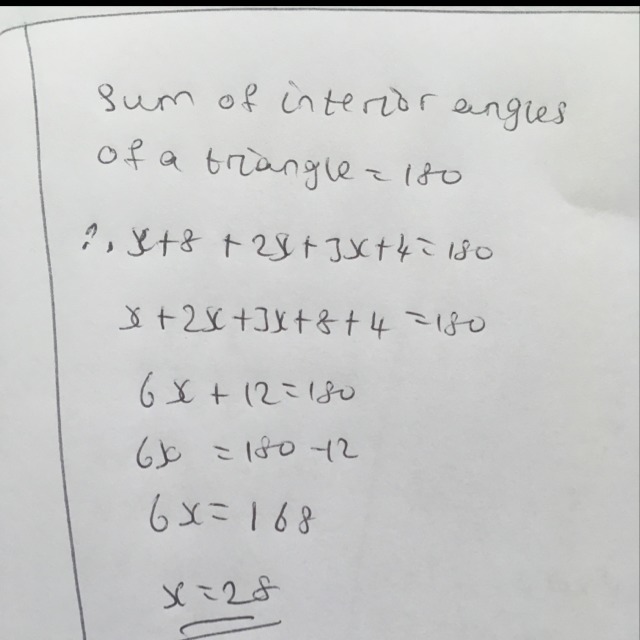 Sum of interior angles
of a triangle = 180
∴ x+8 + 2x+3x+4=180
x+2x+3x+8+4 =180
6x + 12=180
6x =180-12
6x=168
x=28